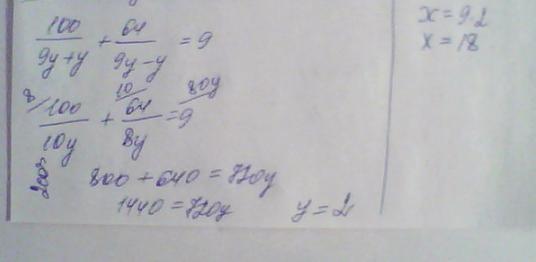 100/(9y+y) + 64/(9y-y) = 9
8/ 100/(10y) + 10/ 64/(8y) = 80y/ 9
800 + 640 = 720y
1440 = 720y y = 2
x = 9·2
x = 18